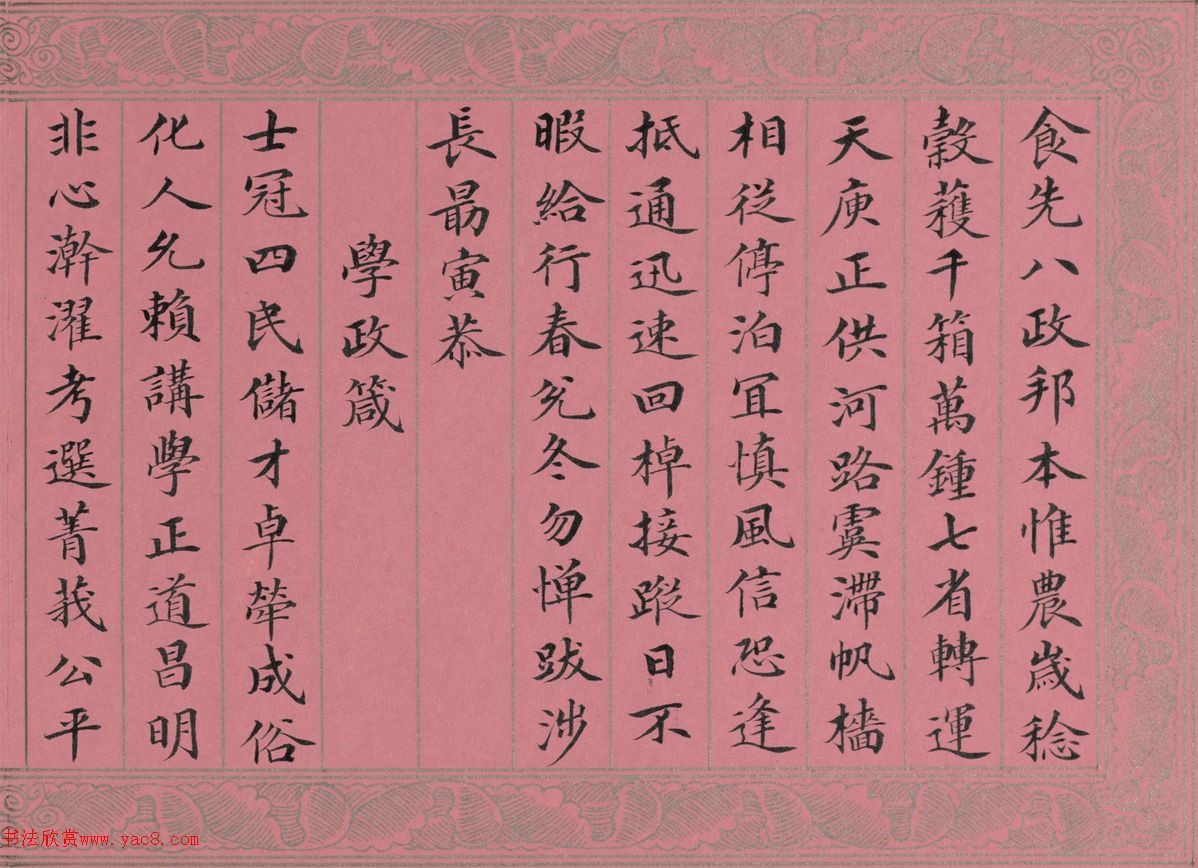 食先八政邦本惟農歲稔
穀蓰千箱萬鍾七省轉運
天庾正供河路虞滯帆檣
相從停泊宜慎風信恐逢
抵通迅速回棹接蹤日不
暇給行春兖冬勿憚跋涉
長勗寅恭
學政箴
士冠四民儲才卓犖成俗
化人允賴講學正道昌明
非心澣濯考選菁莪公平
书法欣赏www.yac8.com